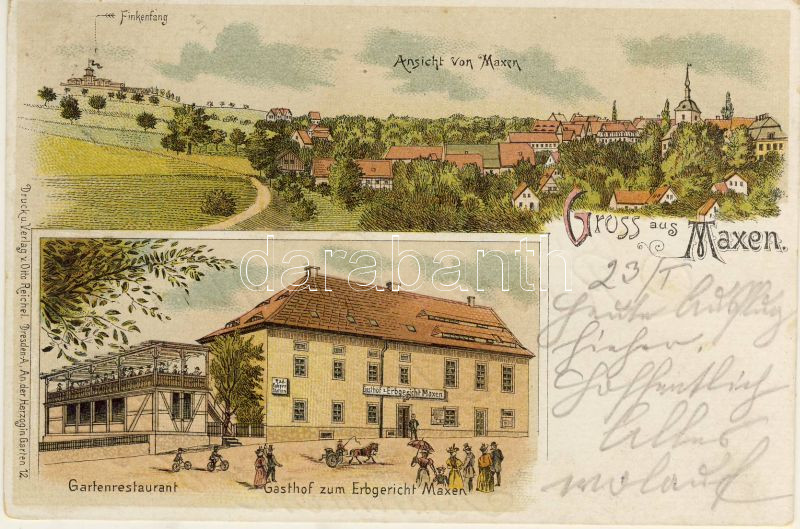 Finkenfang
Ansicht von Maxen
Gruss aus
Maxen.
23/I
Heute Ausflug
hieher.
Hoffentlich
Alles
wolauf
Druck u. Verlag v. Otto Reichel. Dresden-A., An der Herzogin Garten 12
darabanth
Gasthof z. Erbgericht Maxen
Gartenrestaurant
Gasthof zum Erbgericht Maxen